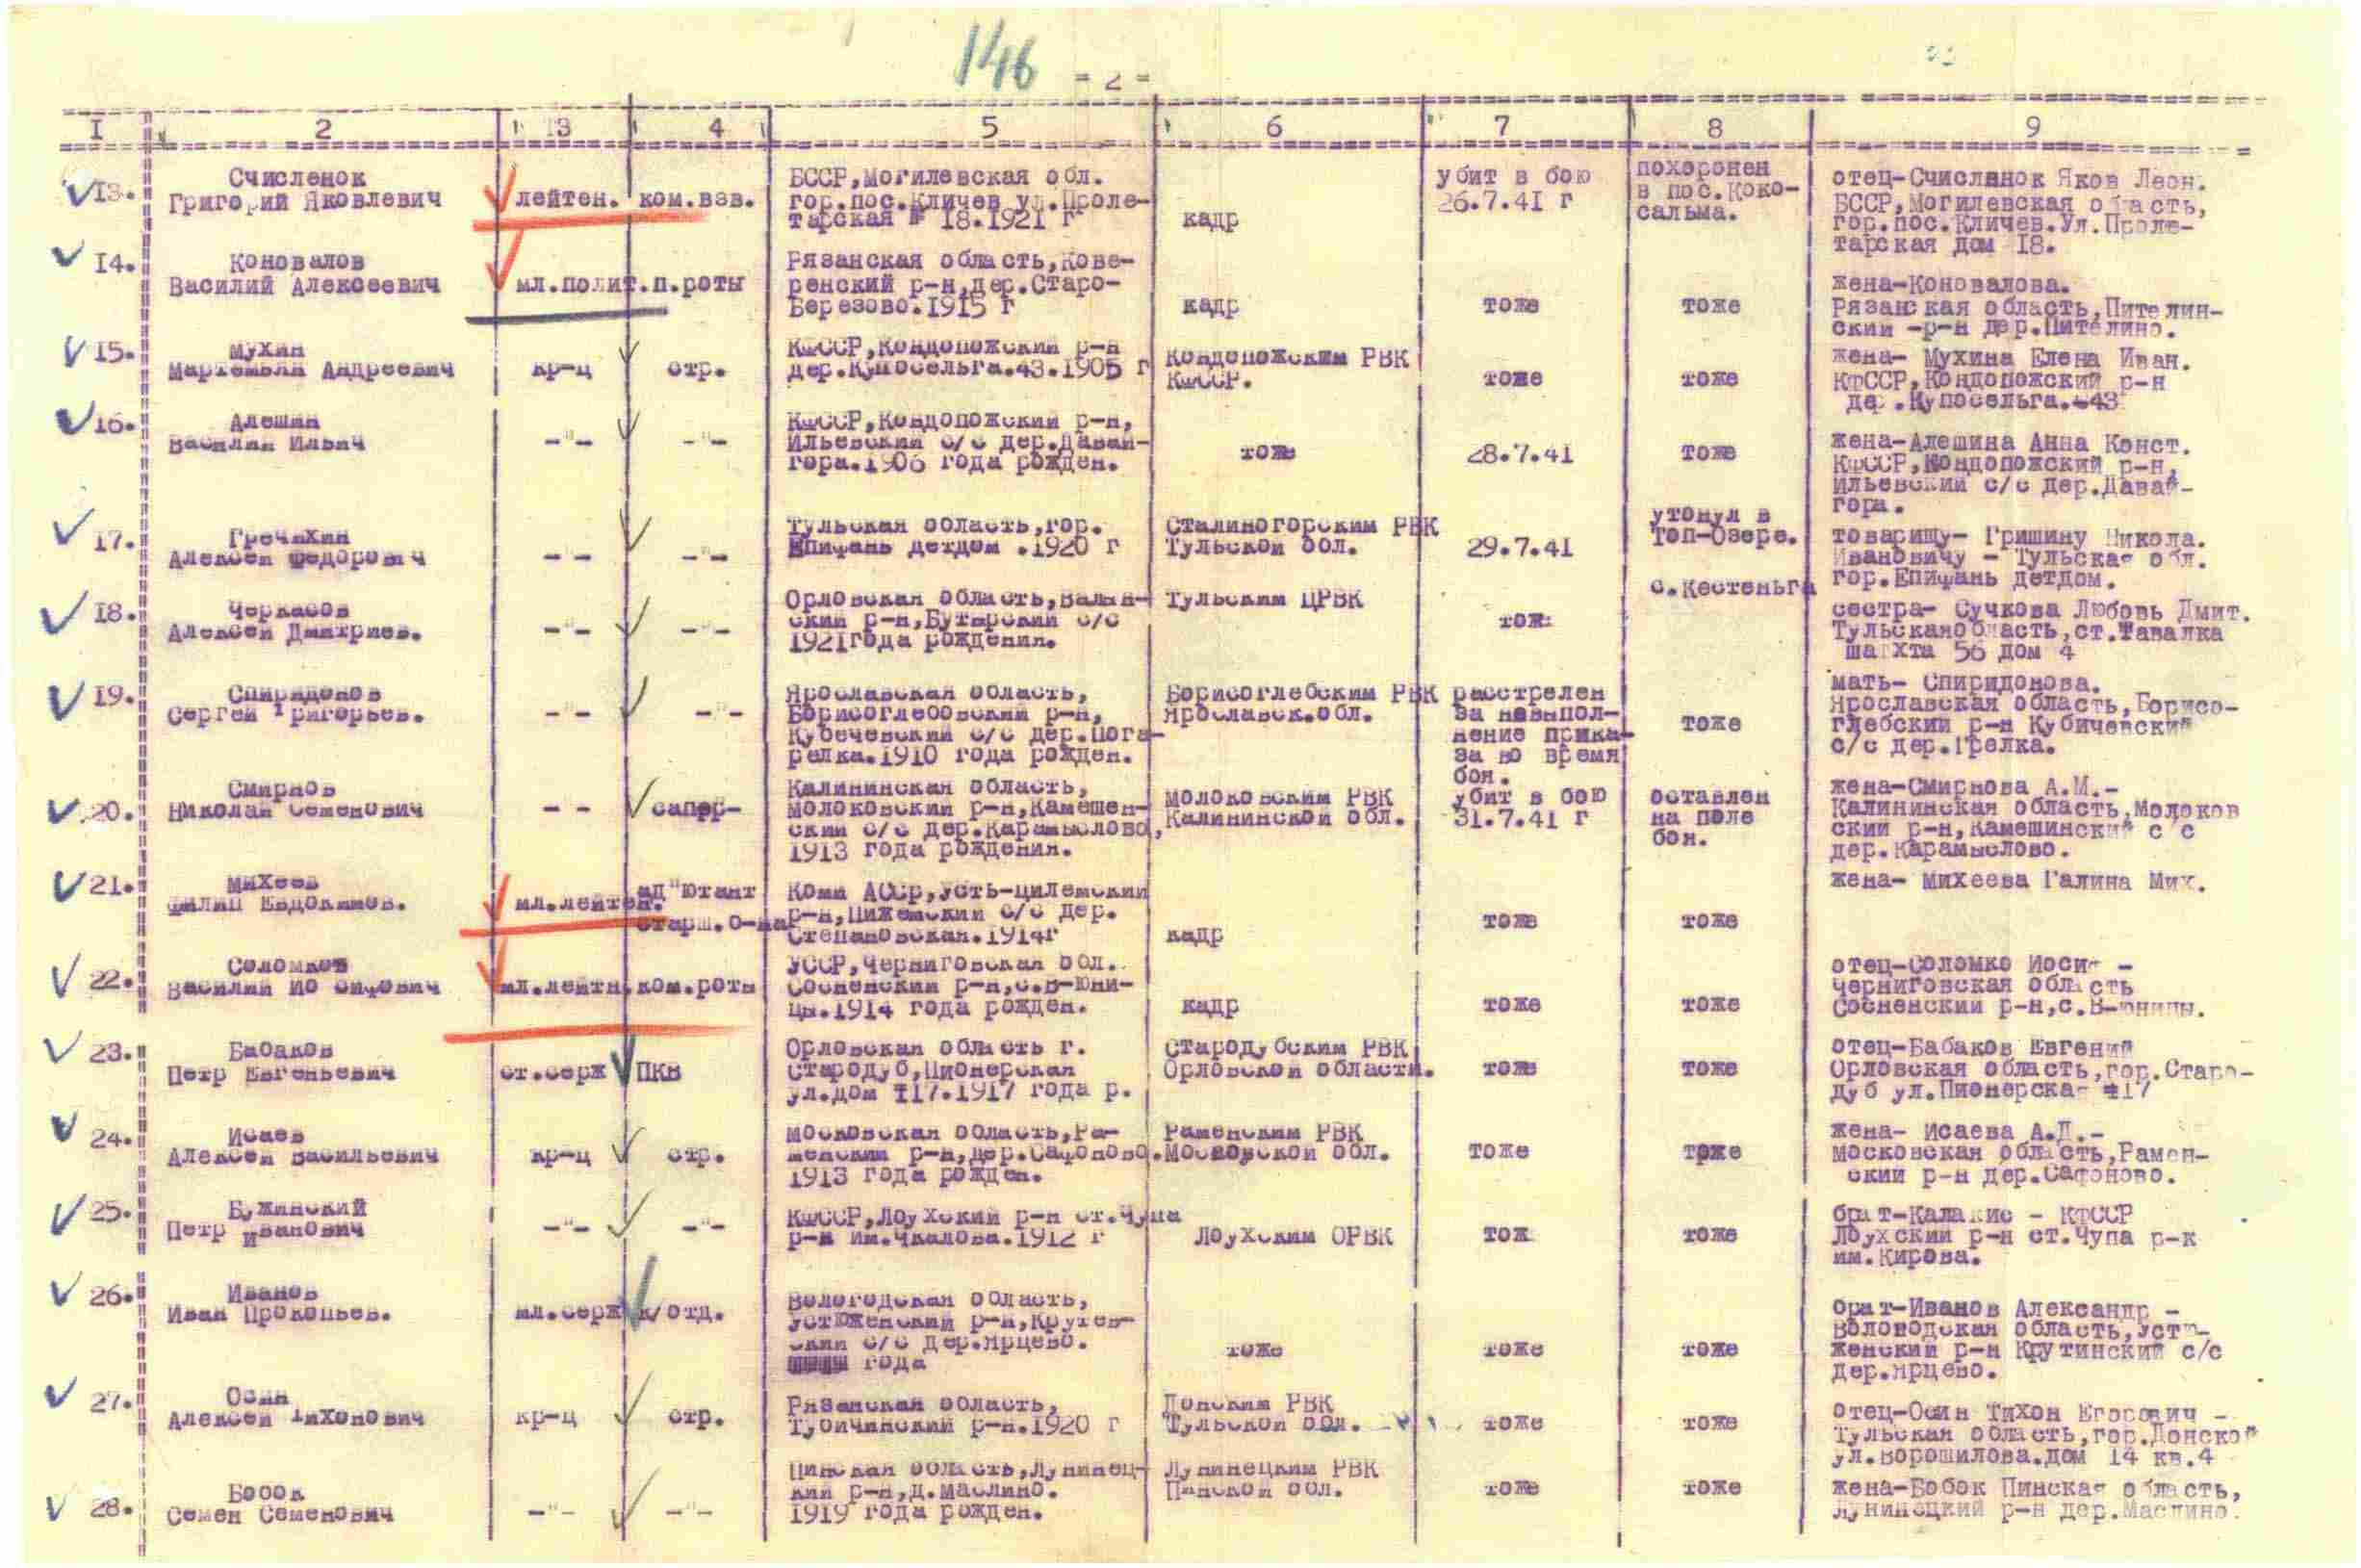 146
= 2 =
I 2 13 4 5 6 7 8 9
13. Счисленок
Григорий Яковлевич
лейтен.
ком.взв.
БССР,Могилевская обл.
гор.пос.Кличев ул.Проле-
тарская № 18.1921 г
кадр
убит в бою
26.7.41 г
похоронен
в пос.Коко-
сальма.
отец-Счислянок Яков Леон.
БССР,Могилевская область,
гор.пос.Кличев.Ул.Проле-
тарская дом 18.
14. Коновалов
Василий Алексеевич
мл.полит.
п.роты
Рязанская область,Кове-
ренский р-н,дер.Старо-
Березово.1915 г
кадр
тоже
тоже
жена-Коновалова.
Рязанская область,Пителин-
ский -р-н дер.Пителино.
15. Мухин
Мартемьян Андреевич
кр-ц
стр.
КФССР,Кондопожский р-н
дер.Купосельга.43.1905 г
Кондопожским РВК
КФССР.
тоже
тоже
жена- Мухина Елена Иван.
КФССР,Кондопожский р-н
дер.Купосельга.43
16. Алешин
Василий Ильич
-"-
-"-
КФССР,Кондопожский р-н,
Ильевский с/с дер.Давай-
гора.1906 года рожден.
тоже
28.7.41
тоже
жена-Алешина Анна Конст.
КФССР,Кондопожский р-н,
Ильевский с/с дер.Давай-
гора.
17. Гречихин
Алексей Федорович
-"-
-"-
Тульская область,гор.
Епифань детдом .1920 г
Сталиногорским РВК
Тульской обл.
29.7.41
утонул в
Топ-Озере.
с.Кестеньга
товарищу- Гришину Никола.
Ивановичу - Тульская обл.
гор.Епифань детдом.
18. Черкасов
Алексей Дмитриев.
-"-
-"-
Орловская область,Валин-
ский р-н,Бутырский с/с
1921года рождения.
Тульским ЦРВК
тож
сестра- Сучкова Любовь Дмит.
Тульскаяобласть,ст.Тавалка
шагхта 56 дом 4
19. Спиридонов
Сергей Григорьев.
-"-
-"-
Ярославская область,
Борисоглебовский р-н,
Кубечевский с/с дер.Пога-
релка.1910 года рожден.
Борисоглебским РВК
Ярославск.обл.
расстрелен
за невыпол-
нение прика-
за во время
боя.
тоже
мать- Спиридонова.
Ярославская область,Борисо-
глебский р-н Кубичевский
с/с дер.Грелка.
20. Смирнов
Николай Семенович
- -
сапер-
Калининская область,
Молоковский р-н,Камешен-
ский с/с дер.Карамыслово,
1913 года рождения.
Молоковским РВК
Калининской обл.
убит в бою
31.7.41 г
оставлен
на поле
боя.
жена-Смирнова А.М.-
Калининская область,Молоков
ский р-н,Камешинский с с
дер.Карамыслово.
21. Михеев
Филип Евдокимов.
мл.лейтен.
ад"ютант
старш.б-на
Коми АССр,усть-цилемский
р-н,Пижемский с/с дер.
Степановская.1914г
кадр
тоже
тоже
жена- Михеева Галина Мих.
22. Соломков
Василий Иосифович
мл.лейтн.
ком.роты
УССР,Черниговская обл.
Сосненский р-н,с.В-Юни-
цы.1914 года рожден.
кадр
тоже
тоже
отец-Соломко Иосиф -
Черниговская область
Сосненский р-н,с.В-юницы.
23. Бабаков
Петр Евгеньевич
ст.серж
ПКВ
Орловская область г.
Стародуб,Пионерская
ул.дом 117.1917 года р.
Стародубским РВК
Орловской области.
тоже
тоже
отец-Бабаков Евгений
Орловская область,гор.Старо-
дуб ул.Пионерская 17
24. Исаев
Алексей Васильевич
кр-ц
стр.
Московская область,Ра-
менским р-н,дер.Сафоново.
1913 года рожден.
Раменским РВК
Московской обл.
тоже
тоже
жена- Исаева А.Д.-
Московская область,Рамен-
ский р-н дер.Сафоново.
25. Бужинский
Петр Иванович
-"-
-"-
КФССР,Лоухский р-н ст.Чупа
р-н им.Чкалова.1912 г
Лоухским ОРВК
тож
тоже
брат-Калакис - КФССР
Лоухский р-н ст.Чупа р-к
им.Кирова.
26. Иванов
Иван Прокопьев.
мл.серж
к/отд.
Вологодская область,
Устюженский р-н,Крутев-
ский с/с дер.Ярцево.
года
тоже
тоже
тоже
брат-Иванов Александр -
Вологодская область,Устю-
женский р-н Крутинский с/с
дер.Ярцево.
27. Осин
Алексей Тихонович
кр-ц
стр.
Рязанская область,
Тубичинский р-н.1920 г
Донским РВК
Тульской обл.
тоже
тоже
отец-Осин Тихон Егорович -
Тульская область,гор.Донской
ул.Ворошилова.дом 14 кв.4
28. Бобок
Семен Семенович
-"-
-"-
Пинская область,Лунинец-
кий р-н,д.Маслино.
1919 года рожден.
Лунинецким РВК
Пинской обл.
тоже
тоже
жена-Бобок Пинская область,
Лунинецкий р-н дер.Маслино.